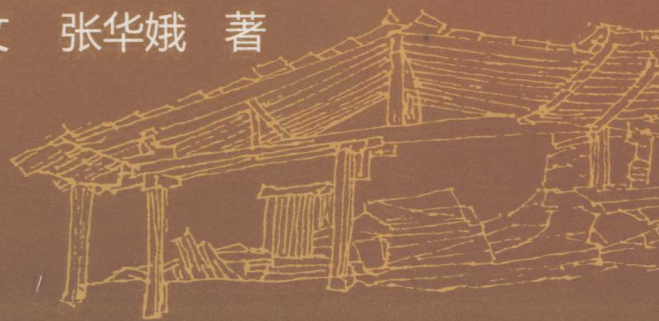 张华娥 著